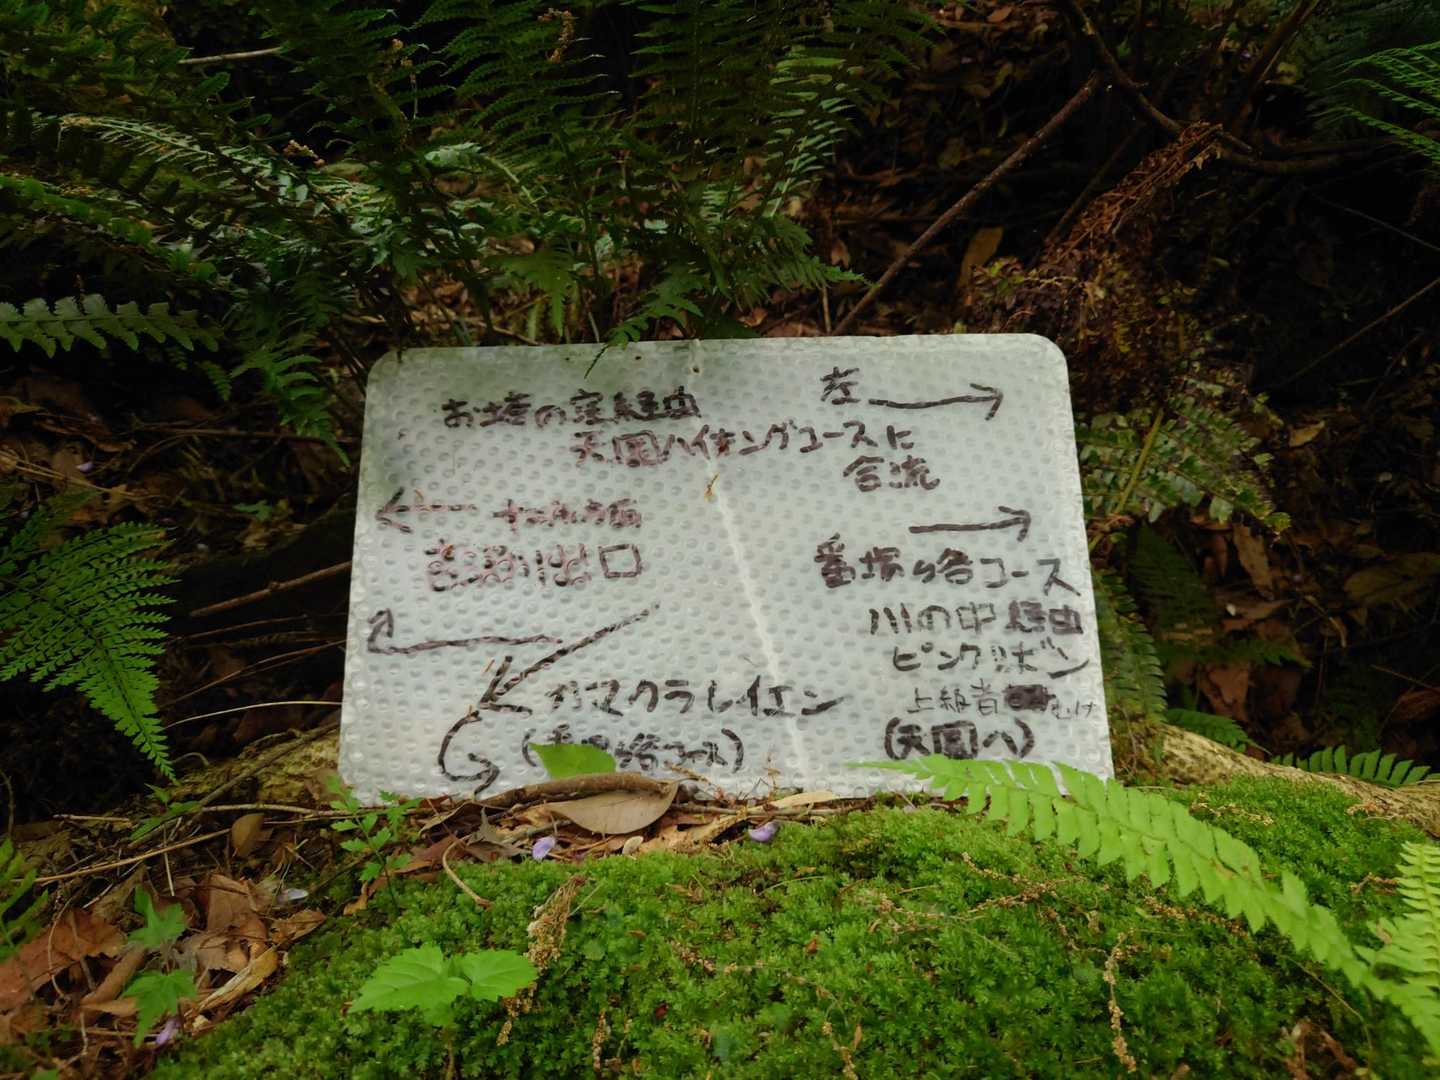 左 →
お塔の窪経由
天園ハイキングコースに
合流
← 十二所方面
□
→
番場ヶ谷コース
川の中経由
ピンクリボン
上級者むけ
(天園へ)
カマクラレイエン
ヶ谷コース)